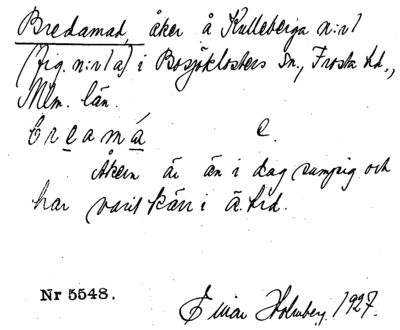 Bredamad, åker å Kulleberga n:r 1
(fig. n:r 1 a) i Bosjöklosters sn., Frosta hd.,
Mlm. län.
breamá e.
Åkern är än i dag sumpig och
har varit kärr i ä. tid.
Nr 5548.
Einar Holmberg 1927.